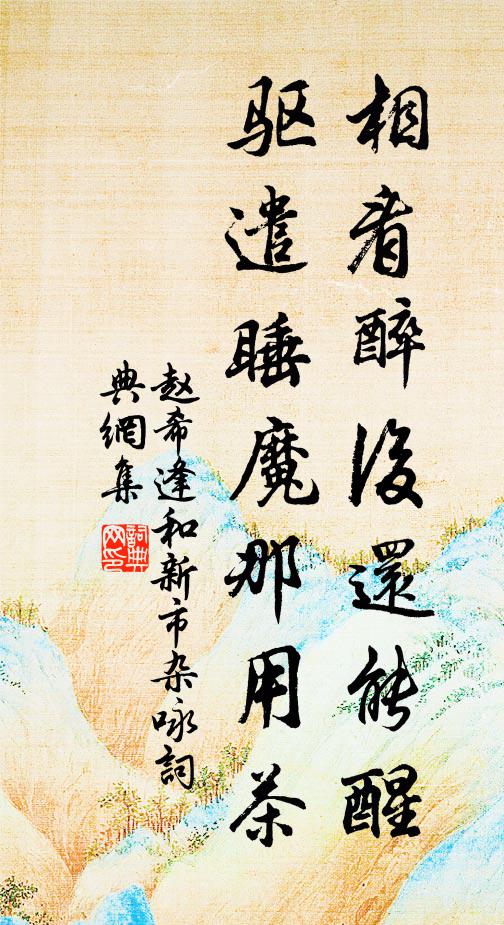 相看醉後還能醒
驱遣睡魔那用茶
赵希逢和新市杂咏詞
典網集
詞典